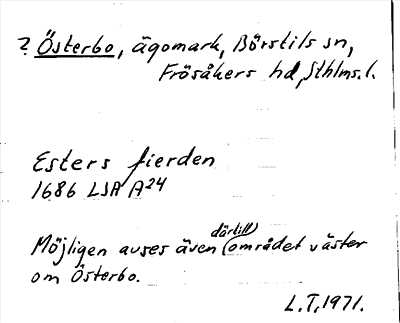 ? Österbo, ägomark, Börstils sn,
Frösåkers hd, Sthlms.l.
Esters fierden
1686 LSA A24
Möjligen avses även (därtill) området väster
om Österbo.
L.T, 1971.